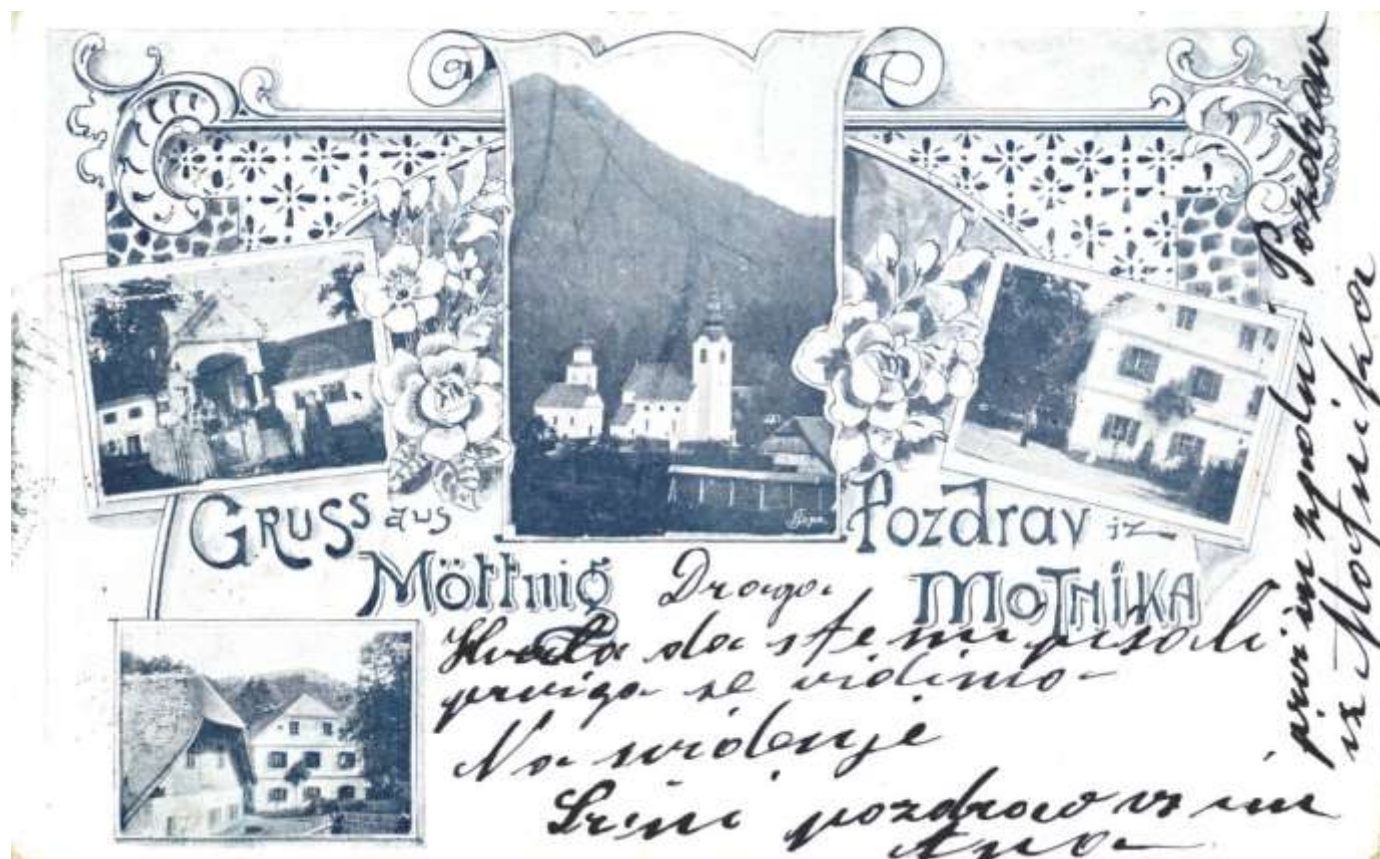 GRUSS aus
Möttnig
Pozdrav iz
MOTNIKA
Draga
Hvala da ste mi pisali
prviga se vidimo
Na svidenje
Srčni pozdrav vsim
Ana
Pozdrav
iz Motnika